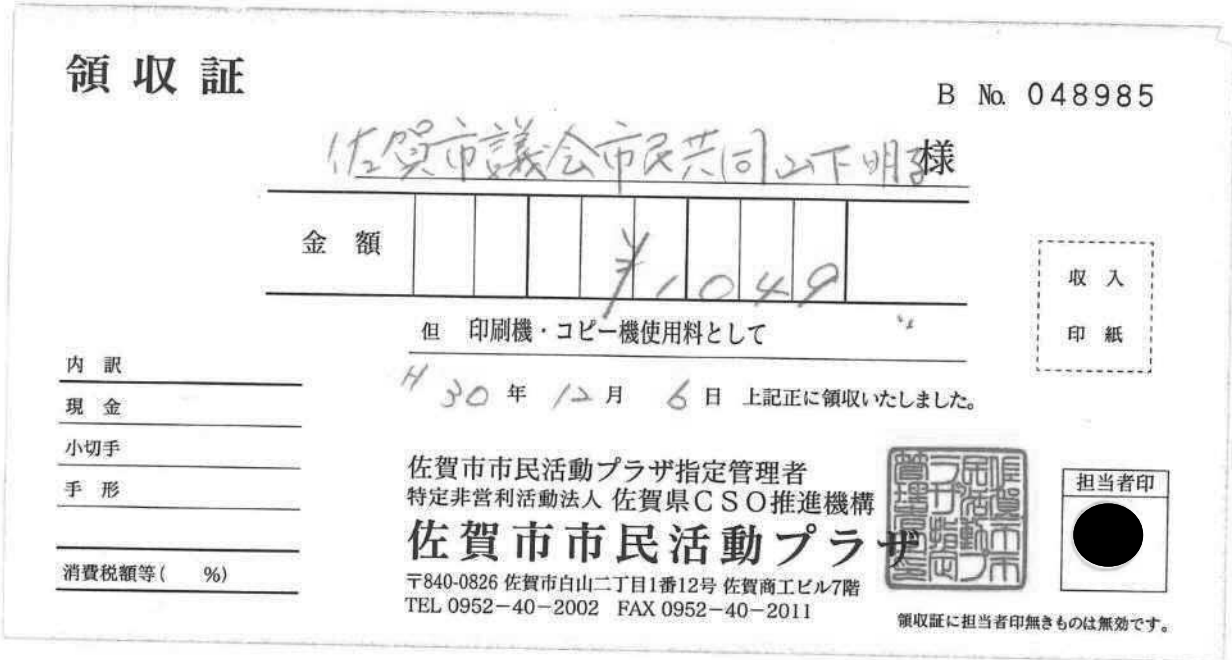 領収証
B No. 048985
佐賀市議会市民共同山下明子様
金額 ¥1049
但 印刷機・コピー機使用料として
収入
印紙
H30年12月6日 上記正に領収いたしました。
内訳
現金
小切手
手形
消費税額等( %)
佐賀市市民活動プラザ指定管理者
特定非営利活動法人 佐賀県CSO推進機構
佐賀市市民活動プラザ
〒840-0826 佐賀市白山二丁目1番12号 佐賀商工ビル7階
TEL 0952-40-2002 FAX 0952-40-2011
担当者印
領収証に担当者印無きものは無効です。